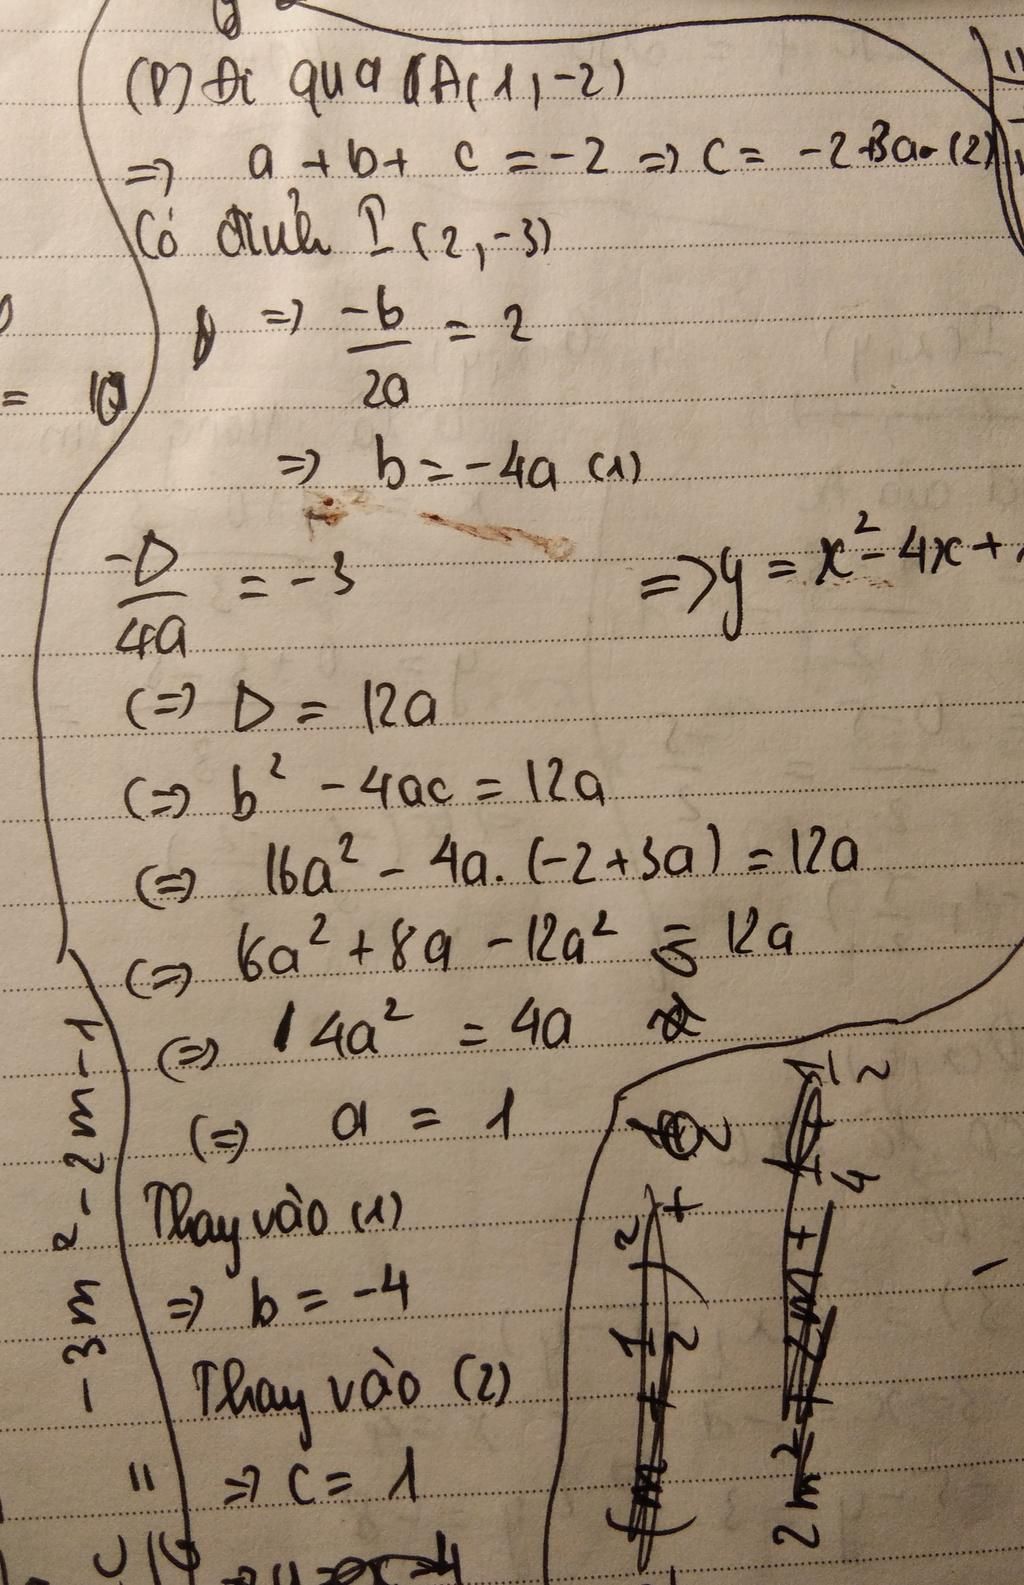 (P) đi qua A(1,-2)
=> a + b + c = -2 => c = -2+3a (2)
Có đỉnh I(2,-3)
=> -b/2a = 2
= 10
=> b = -4a (1)
-Δ/4a = -3
=> y = x² - 4x +
(=> Δ = 12a
(=> b² - 4ac = 12a
(=> 16a² - 4a. (-2+3a) = 12a
(=> 6a² + 8a - 12a² = 12a
(=> 4a² = 4a
(=> a = 1
Thay vào (1)
=> b = -4
Thay vào (2)
=> c = 1
- 3m² - 2m - 1